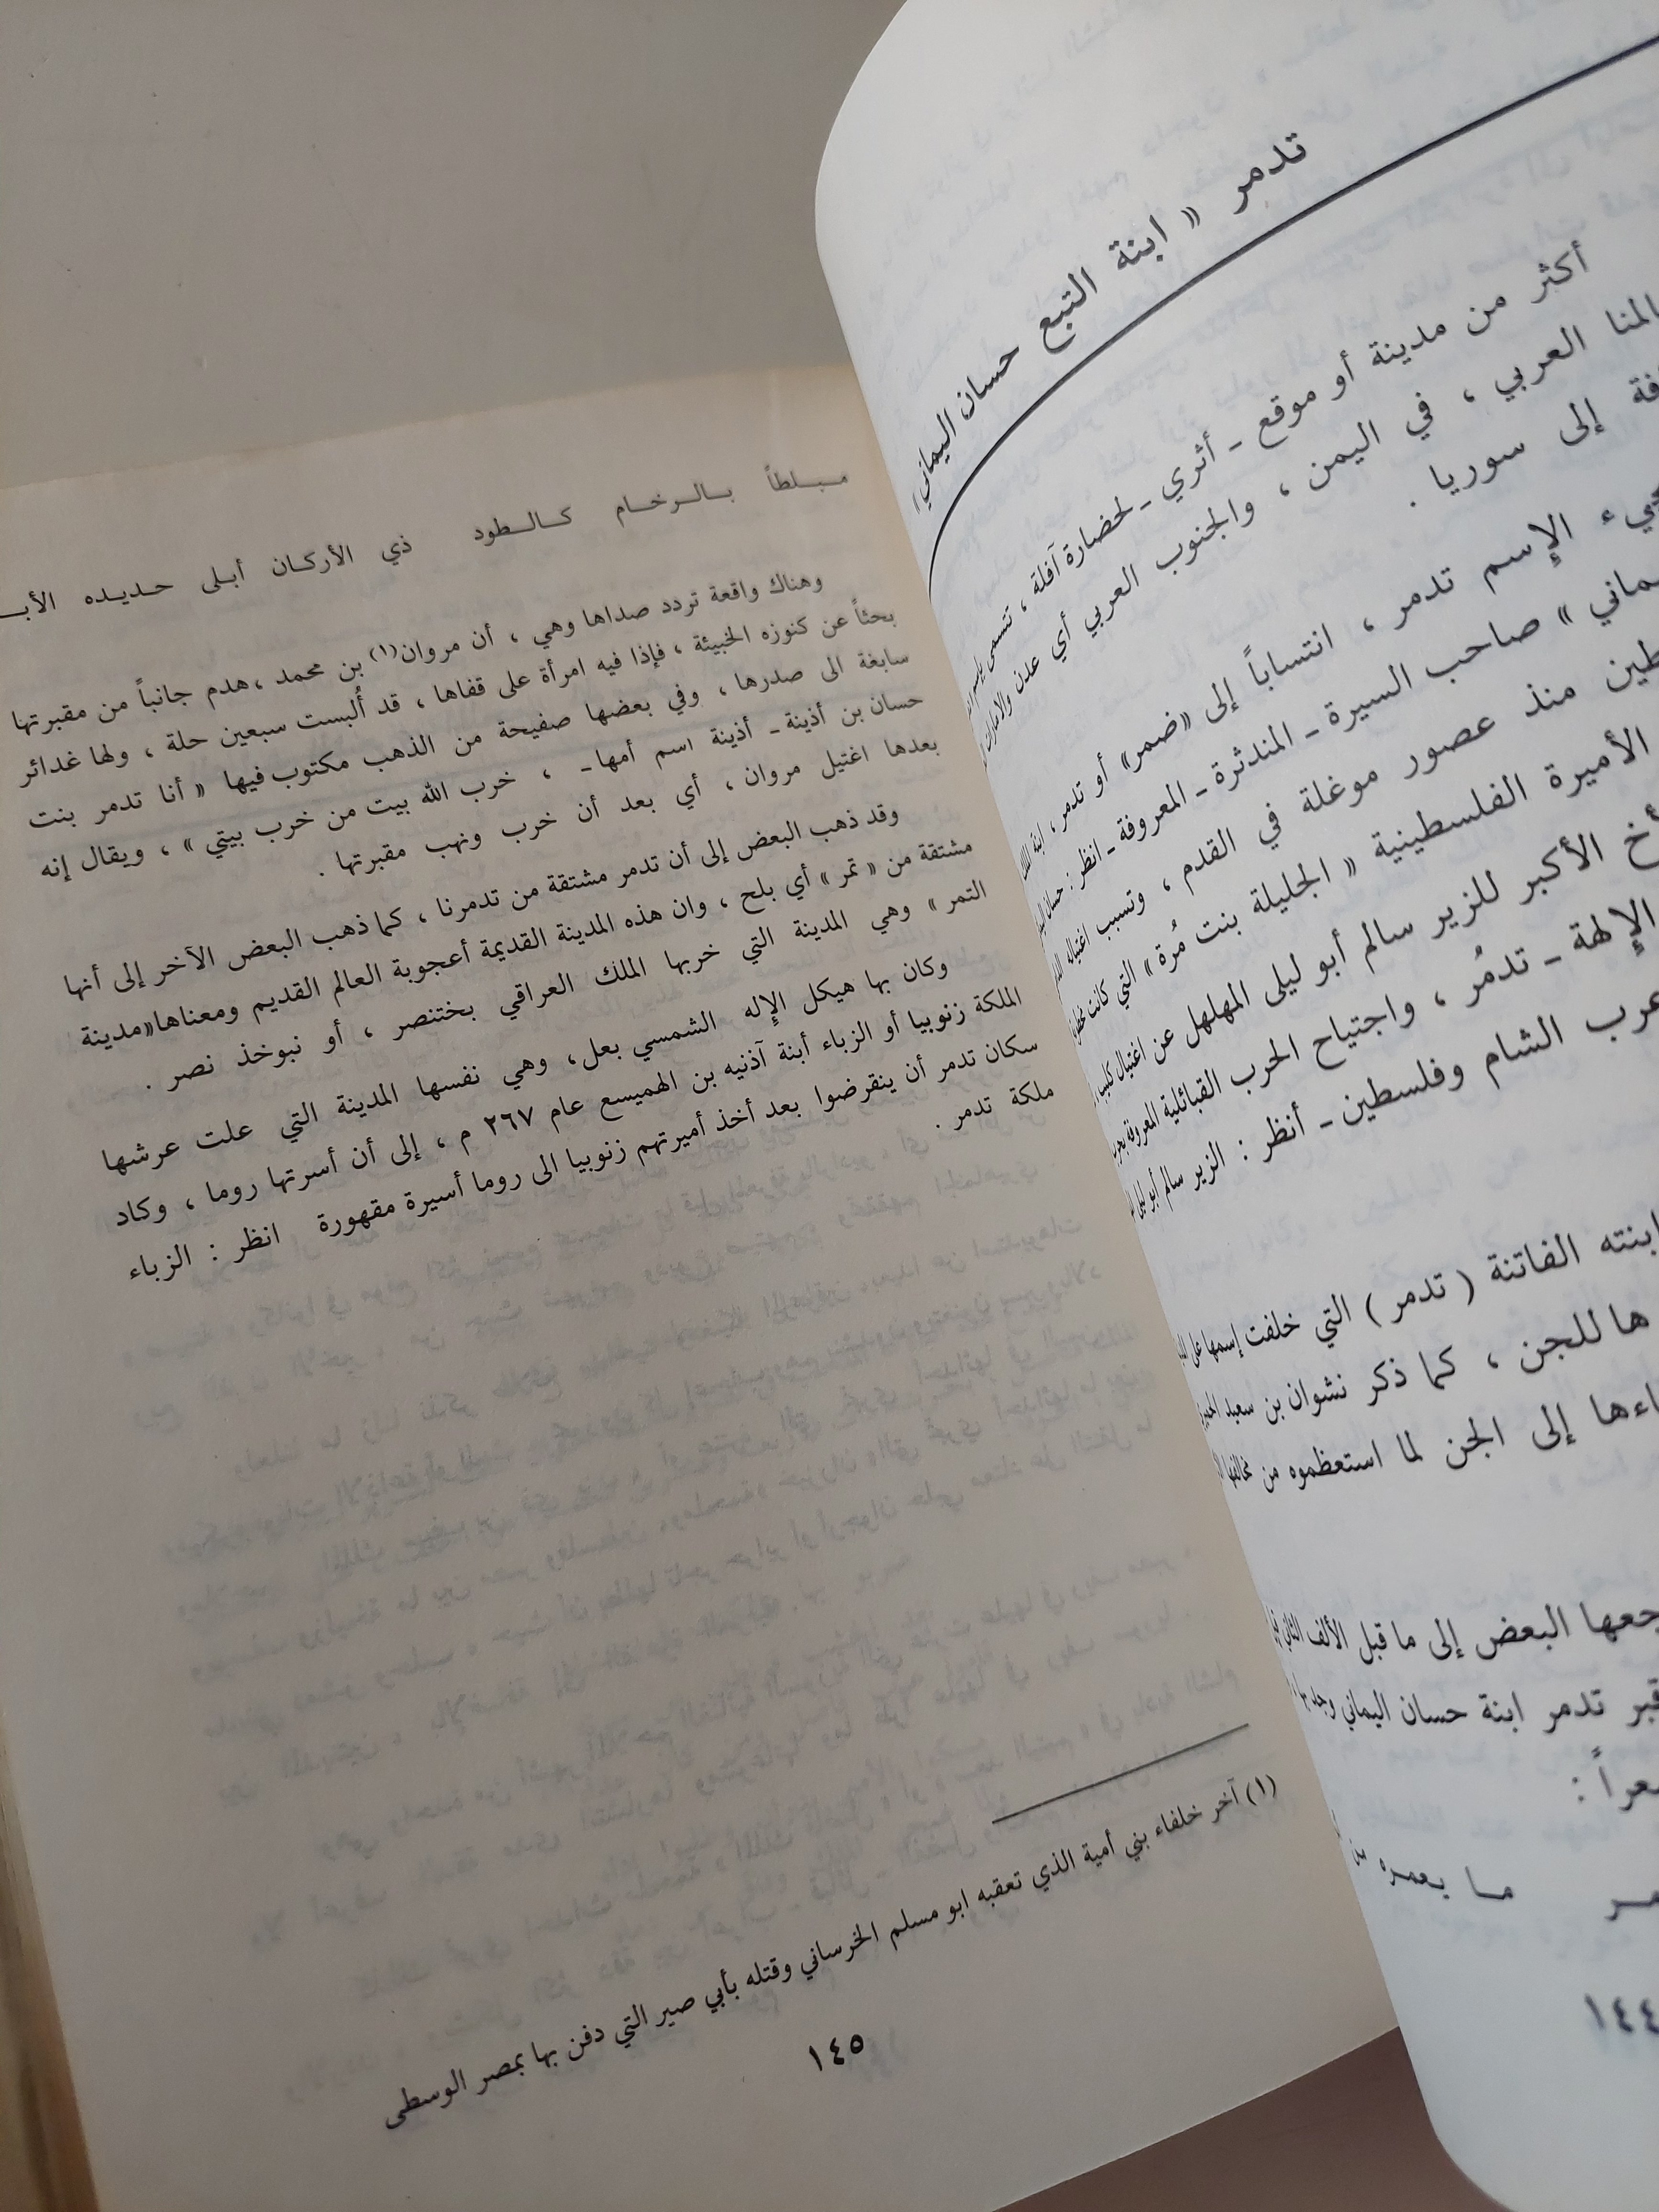 تدمر « ابنة التبع حسان اليماني »
أكثر من مدينة أو موقع ـ أثري ـ لحضارة آفلة ، تسمى
المنا العربي ، في اليمن ، والجنوب العربي أي عدن والامارات
فة إلى سوريا .
يء الإسم تدمر ، انتساباً إلى «ضمر» أو تدمر ، ابنة
ماني » صاحب السيرة ـ المندثرة ـ المعروفة ـ انظر : حسان
طين منذ عصور موغلة في القدم ، وتسبب اغتياله
الأميرة الفلسطينية « الجليلة بنت مُرة » التي كانت
أخ الأكبر للزير سالم أبو ليلى المهلهل عن اغتيال كليب
الإلهة ـ تدمُر ، واجتياح الحرب القبائلية المعروفة
عرب الشام وفلسطين ـ أنظر : الزير سالم أبو ليلى
ابنته الفاتنة ( تدمر ) التي خلفت إسمها على
ها للجن ، كما ذكر نشوان بن سعيد
اءها إلى الجن لما استعظموه من
جعها البعض إلى ما قبل الألف الثاني
قبر تدمر ابنة حسان اليماني وجد بها
عراً :
مر ما يعمره من
١٤٤
مـبـلـطاً بـالـرخـام كـالـطود ذي الأركـان أبـلى حـديـده الأبـ
وهناك واقعة تردد صداها وهي ، أن مروان(١) بن محمد ، هدم جانباً من مقبرتها
بحثاً عن كنوزه الخبيئة ، فإذا فيه امرأة على قفاها ، قد أُلبست سبعين حلة ، ولها غدائر
سابغة الى صدرها ، وفي بعضها صفيحة من الذهب مكتوب فيها « أنا تدمر بنت
حسان بن أذينة ـ أذينة اسم أمها ـ ، خرب الله بيت من خرب بيتي » ، ويقال إنه
بعدها اغتيل مروان ، أي بعد أن خرب ونهب مقبرتها .
وقد ذهب البعض إلى أن تدمر مشتقة من تدمرنا ، كما ذهب البعض الآخر إلى أنها
مشتقة من « تمر » أي بلح ، وان هذه المدينة القديمة أعجوبة العالم القديم ومعناها «مدينة
التمر » وهي المدينة التي خربها الملك العراقي بختنصر ، أو نبوخذ نصر .
وكان بها هيكل الإله الشمسي بعل ، وهي نفسها المدينة التي علت عرشها
الملكة زنوبيا أو الزباء أبنة آذنيه بن الهميسع عام ٢٦٧ م ، إلى أن أسرتها روما ، وكاد
سكان تدمر أن ينقرضوا بعد أخذ أميرتهم زنوبيا الى روما أسيرة مقهورة انظر : الزباء
ملكة تدمر .
(١) آخر خلفاء بني أمية الذي تعقبه ابو مسلم الخرساني وقتله بأبي صير التي دفن بها بمصر الوسطى
١٤٥